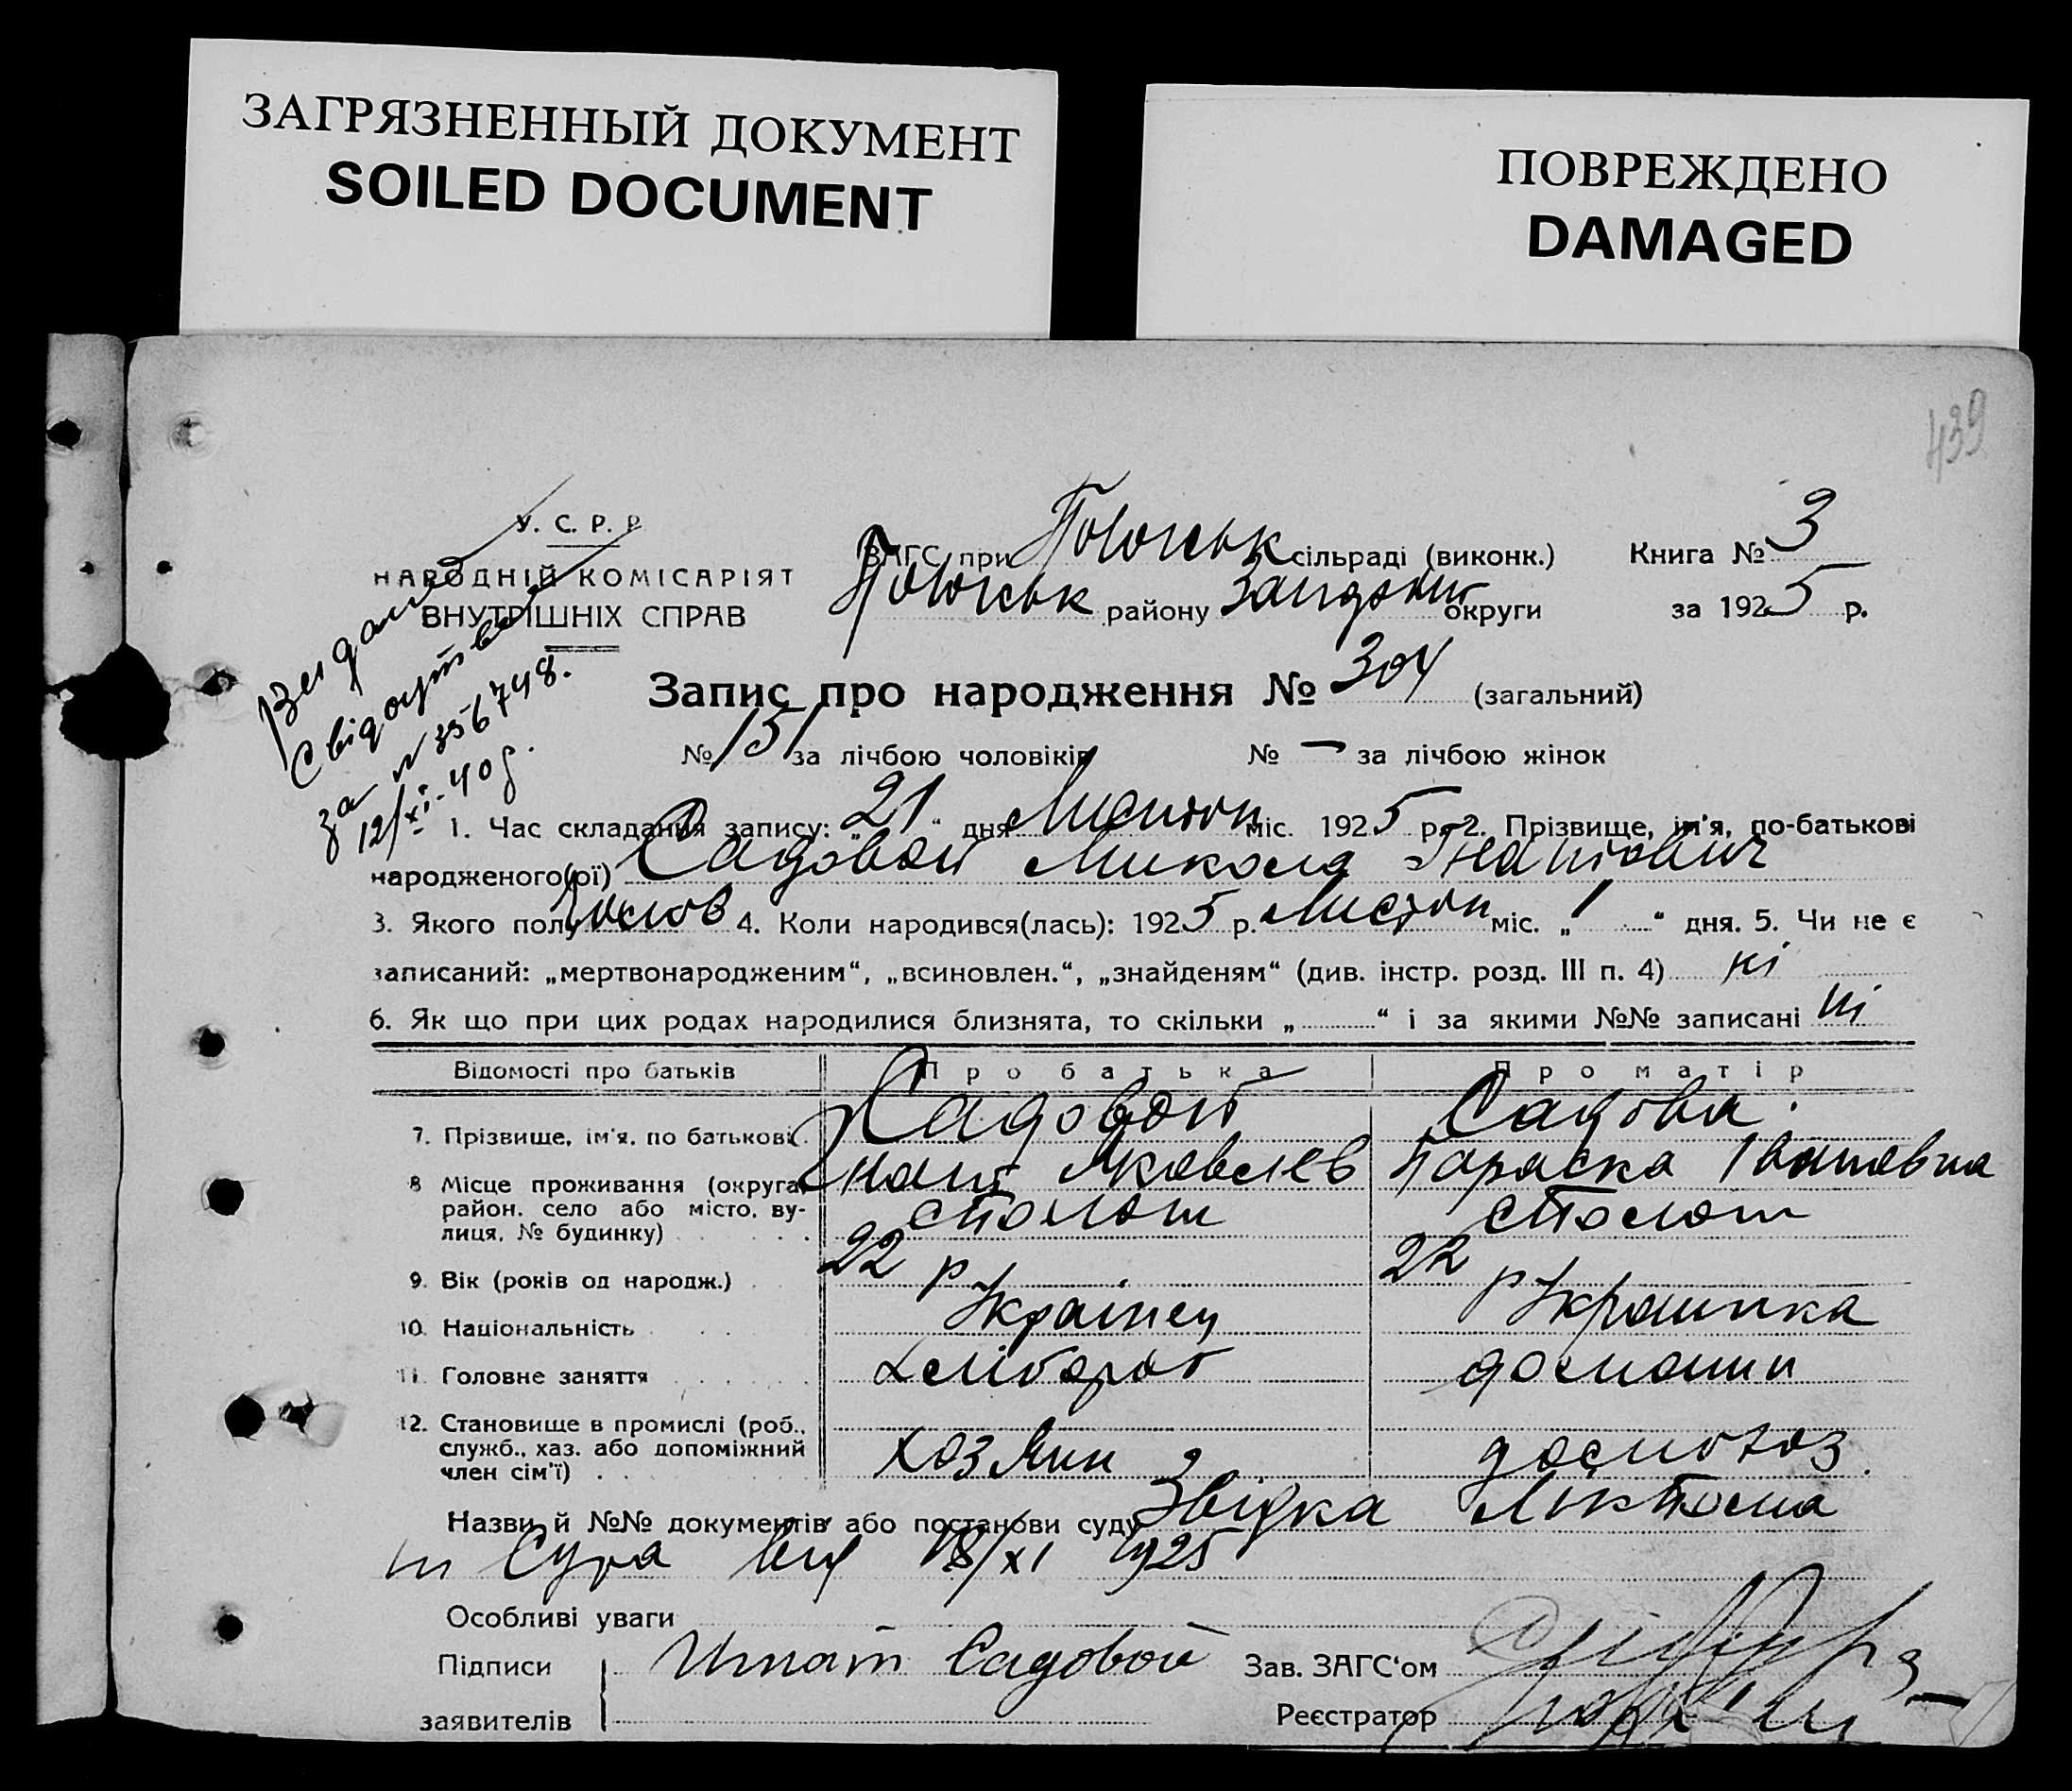 ЗАГРЯЗНЕННЫЙ ДОКУМЕНТ
SOILED DOCUMENT
ПОВРЕЖДЕНО
DAMAGED
439
У. С. Р. Р
НАРОДНІЙ КОМІСАРІЯТ
ВНУТРІШНІХ СПРАВ
ЗАГС при Пологськ сільраді (виконк.) Книга № 3
Пологськ району округи за 1925 р.
Видано
свідоцтво
за № 356748.
12/XI-40 р.
Запис про народження № 304 (загальний)
№ 151 за лічбою чоловіків № — за лічбою жінок
1. Час складання запису: „21“ дня Листоп міс. 1925 р. 2. Прізвище, ім'я, по-батькові
народженого(ої) Садовой Микола Гнатович
3. Якого полу 4. Коли народився(лась): 1925 р. Листоп міс. „1“ дня. 5. Чи не є
записаний: „мертвонародженим“, „всиновлен.“, „знайденям“ (див. інстр. розд. III п. 4) ні
6. Як що при цих родах народилися близнята, то скільки „ “ і за якими №№ записані ні
Відомості про батьків Про батька Про матір
7. Прізвище, ім'я, по батькові. Садовой Гнат Яковлев Садова Параска Івановна
8 Місце проживання (округа, район, село або місто, вулиця, № будинку)
9. Вік (років од народж.) 22 р 22 р
10. Національність Українец Украинка
11. Головне заняття хлібороб домашн
12. Становище в промислі (роб., служб., хаз. або допоміжний член сім'ї) хозяин
Назви й №№ документів або постанови суду
від 18/XI 1925
Особливі уваги
Підписи Игнат Садовой Зав. ЗАГС'ом
заявителів Реєстратор